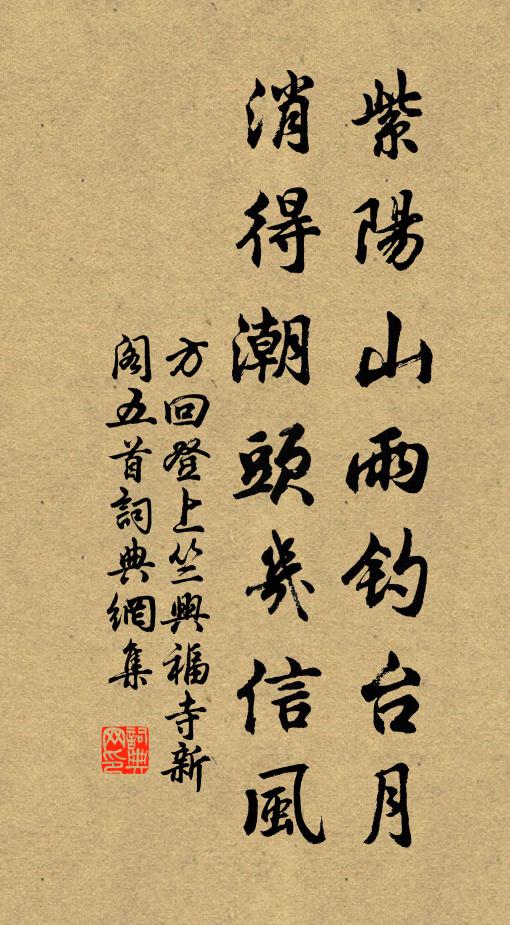 紫陽山雨釣台月
消得潮頭幾信風
方回登上竺興福寺新
閣五首詞典網集
詞典
网印